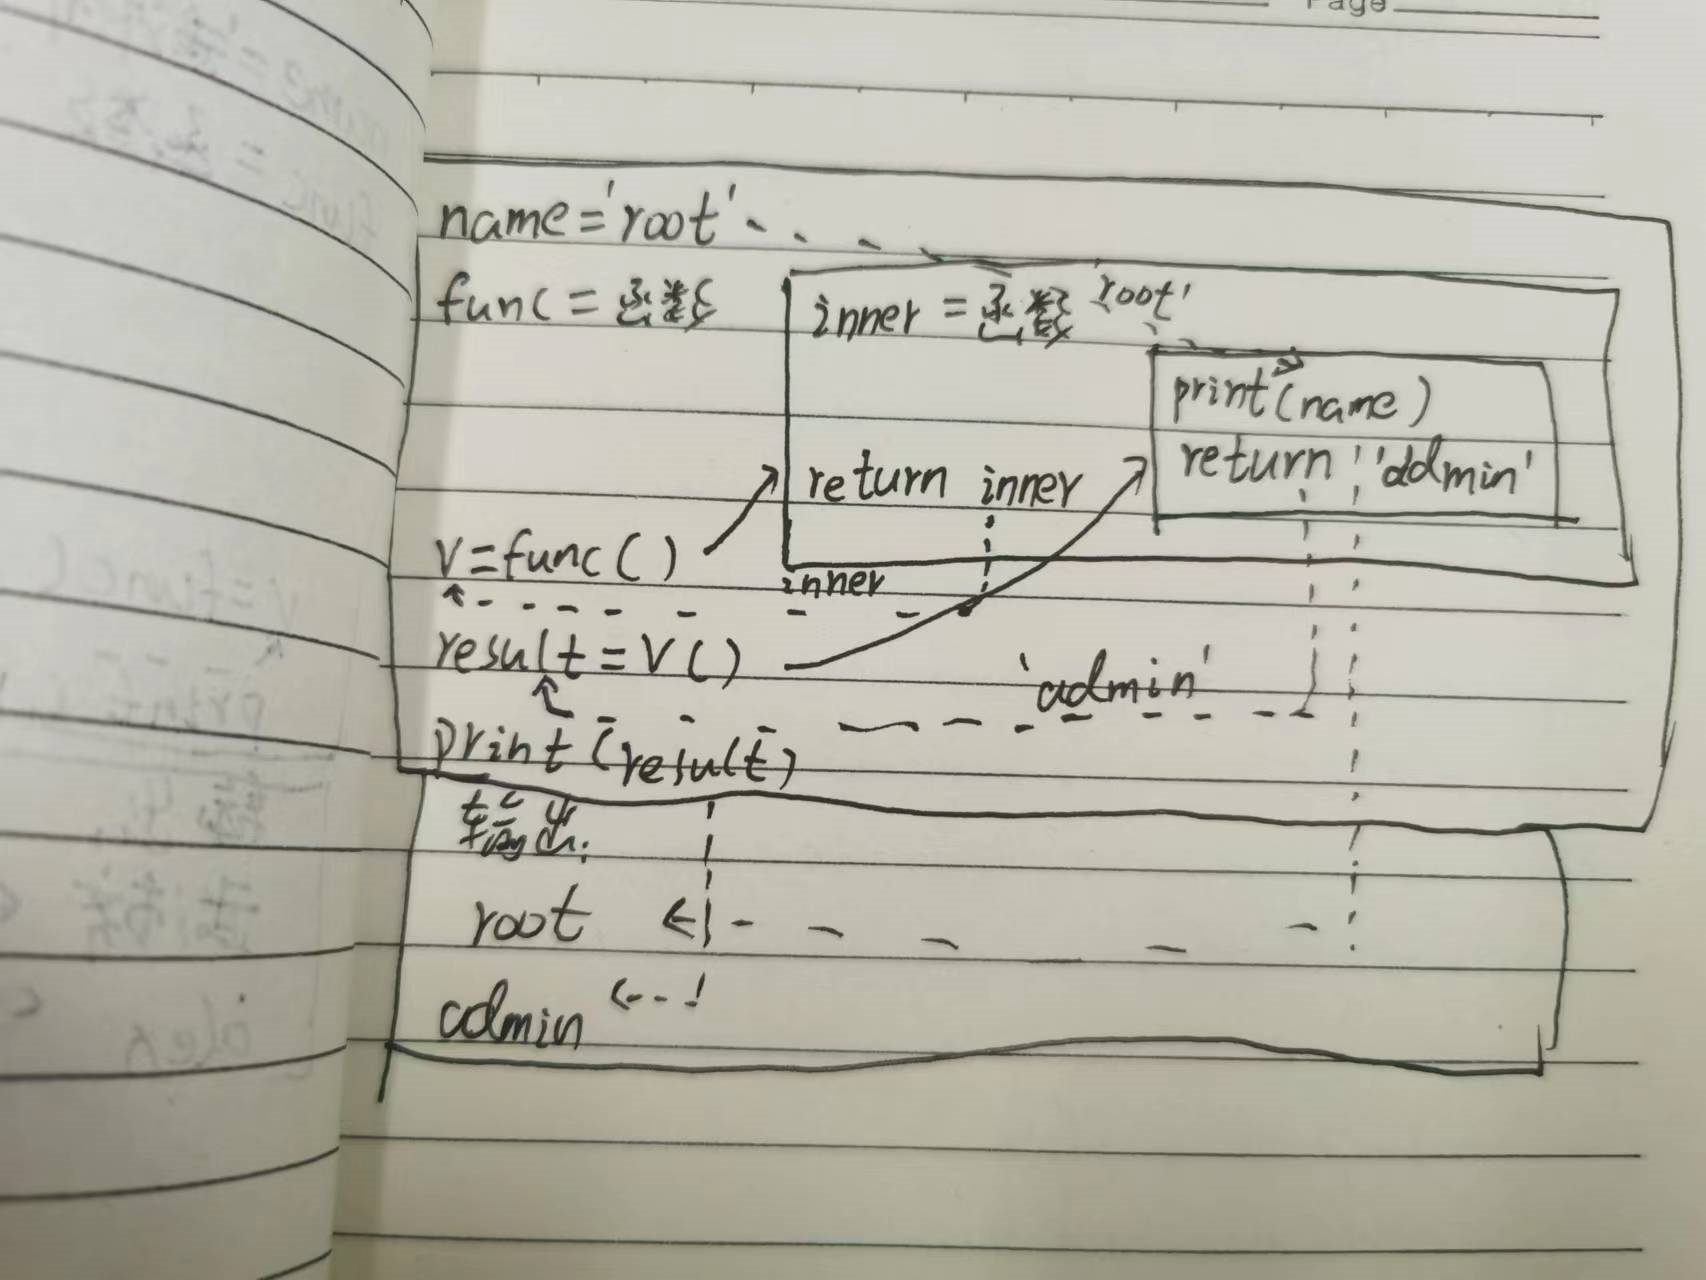 Page
name='root'
func=函数
inner=函数 'root'
print(name)
return 'admin'
return inner
v=func()
inner
result=v()
'admin'
print(result)
输出:
root
admin